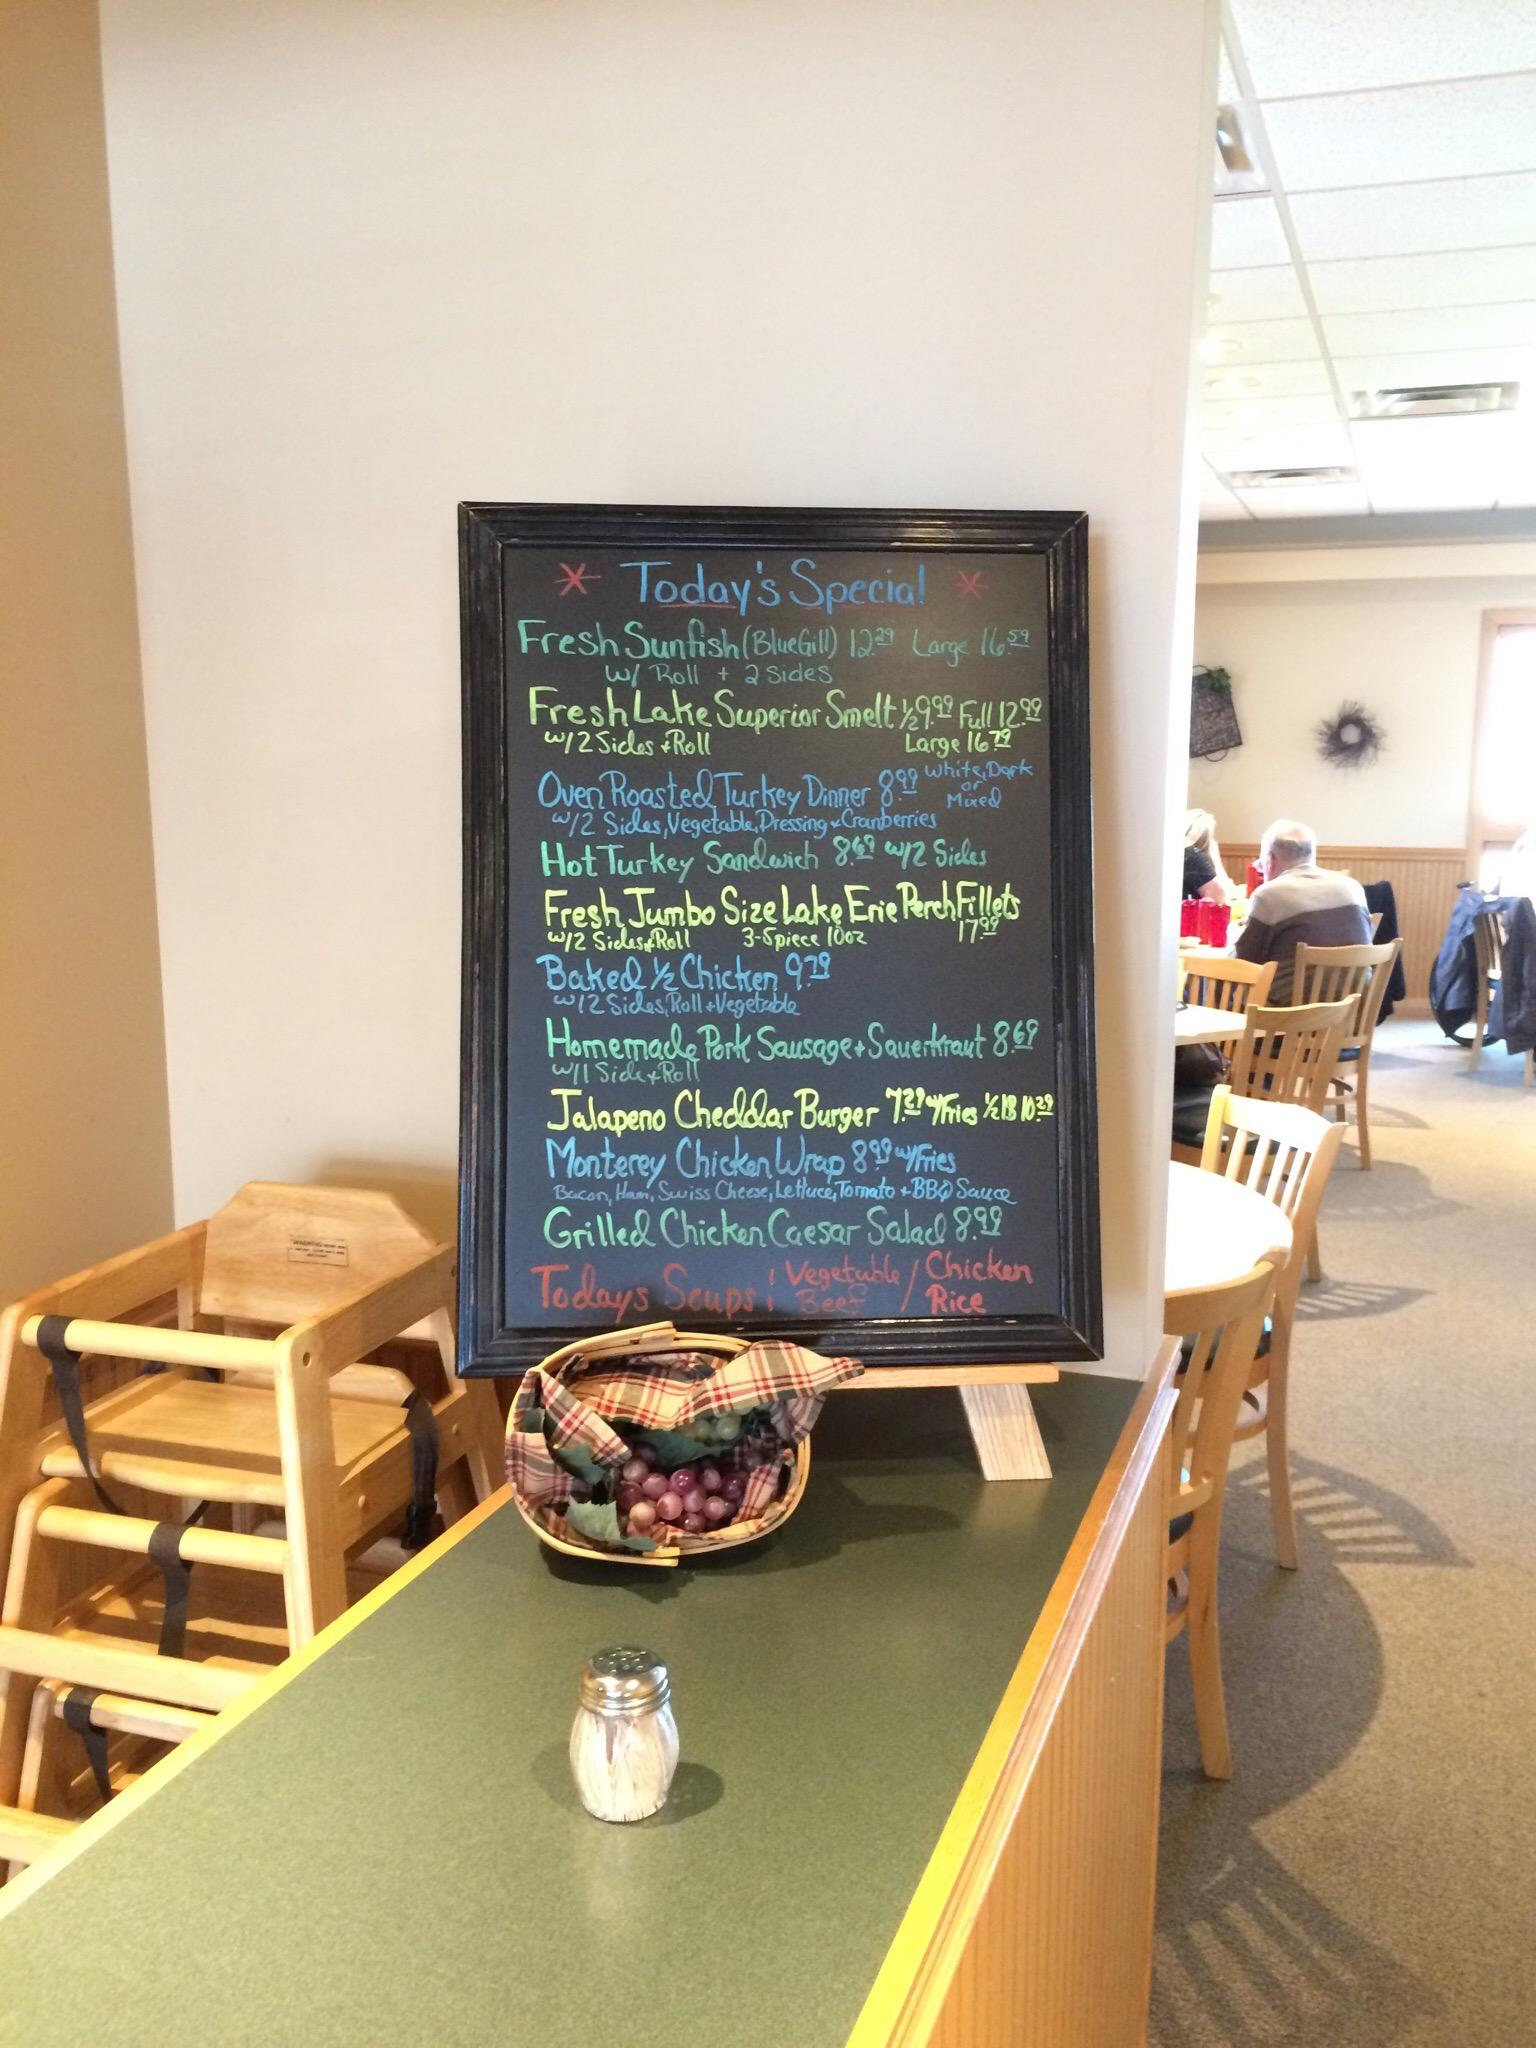 * Today's Special *
Fresh Sunfish (BlueGill) 12.29 Large 16.59
w/ Roll + 2 Sides
Fresh Lake Superior Smelt 1/2 9.99 Full 12.99
w/2 Sides + Roll Large 16.79
Oven Roasted Turkey Dinner 8.99 White, Dark or Mixed
w/2 Sides, Vegetable, Dressing + Cranberries
Hot Turkey Sandwich 8.69 w/2 Sides
Fresh Jumbo Size Lake Erie Perch Fillets
w/2 Sides + Roll 3-5 piece 10oz 17.99
Baked 1/2 Chicken 9.79
w/2 Sides, Roll + Vegetable
Homemade Pork Sausage + Sauerkraut 8.69
w/1 Side + Roll
Jalapeno Cheddar Burger 7.29 w/Fries 1/2 lB 10.29
Monterey Chicken Wrap 8.99 w/Fries
Bacon, Ham, Swiss Cheese, Lettuce, Tomato + BBQ Sauce
Grilled Chicken Caesar Salad 8.99
Todays Soups: Vegetable Beef / Chicken Rice